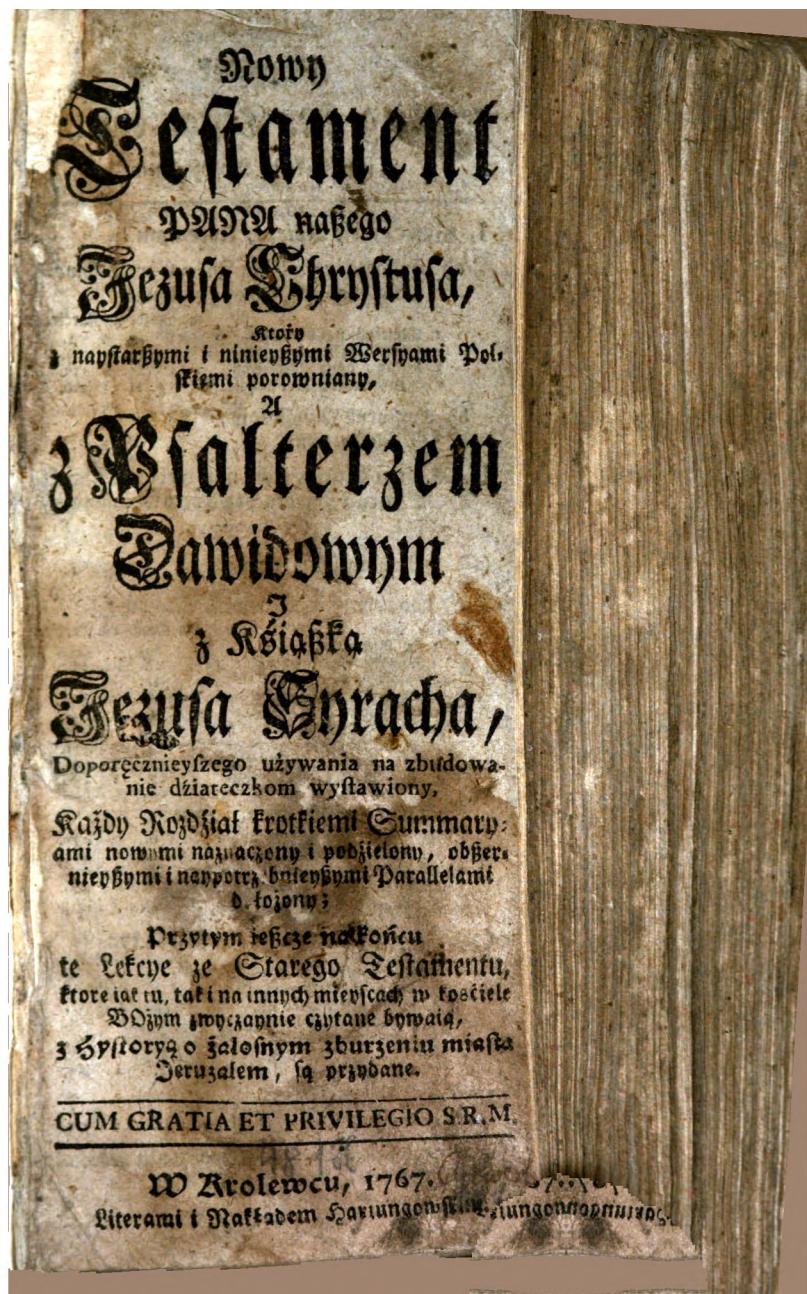 Nowy
Testament
PANA naßego
Jezusa Chrystusa,
Ktory
z naystarßymi i ninieyßymi Wersyami Pol-
skiemi porowniany,
A
z Psalterzem
Dawidowym
I
z Książką
Jezusa Syrącha,
Doporęcznieyszego używania na zbudowa-
nie dźiateczkom wystawiony,
Każdy Rozdźiał krotkiemi Summary-
ami nowymi naznaczony i podźielony, obßer-
nieyßymi i naypotrzebnieyßymi Parallelami
łożony;
Przytym ießcze na końcu
te Lekcye ze Starego Testamentu,
ktore iak tu, tak i na innych mieyscach w kośćiele
BOżym zwyczaynie czytane bywaią,
z Hystoryą o żałosnym zburzeniu miasta
Jeruzalem, są przydane.
CUM GRATIA ET PRIVILEGIO S.R.M.
W Krolewcu, 1767.
Literami i Nakładem